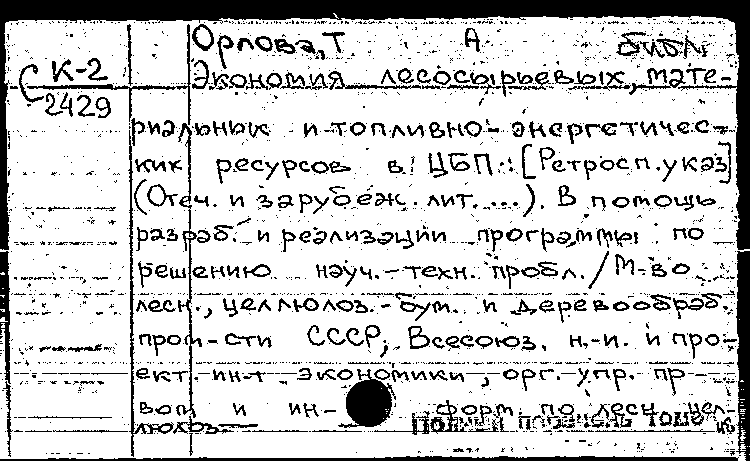 Орлова, Т А библ
С К-2
2429
Экономия лесосырьевых, мате-
риальных и топливно-энергетичес-
ких ресурсов в ЦБП: [Ретросп. указ]
(Отеч. и зарубеж. лит. ...). В помощь
разраб. и реализации программы по
решению науч.-техн. пробл. / М-во
лесн., целлюлоз.-бум. и деревообраб.
пром-сти СССР, Всесоюз. н.-и. и про-
ект. ин-т экономики, орг. упр. пр-
вом и ин- форм. по лесн. цел-
люлоз.